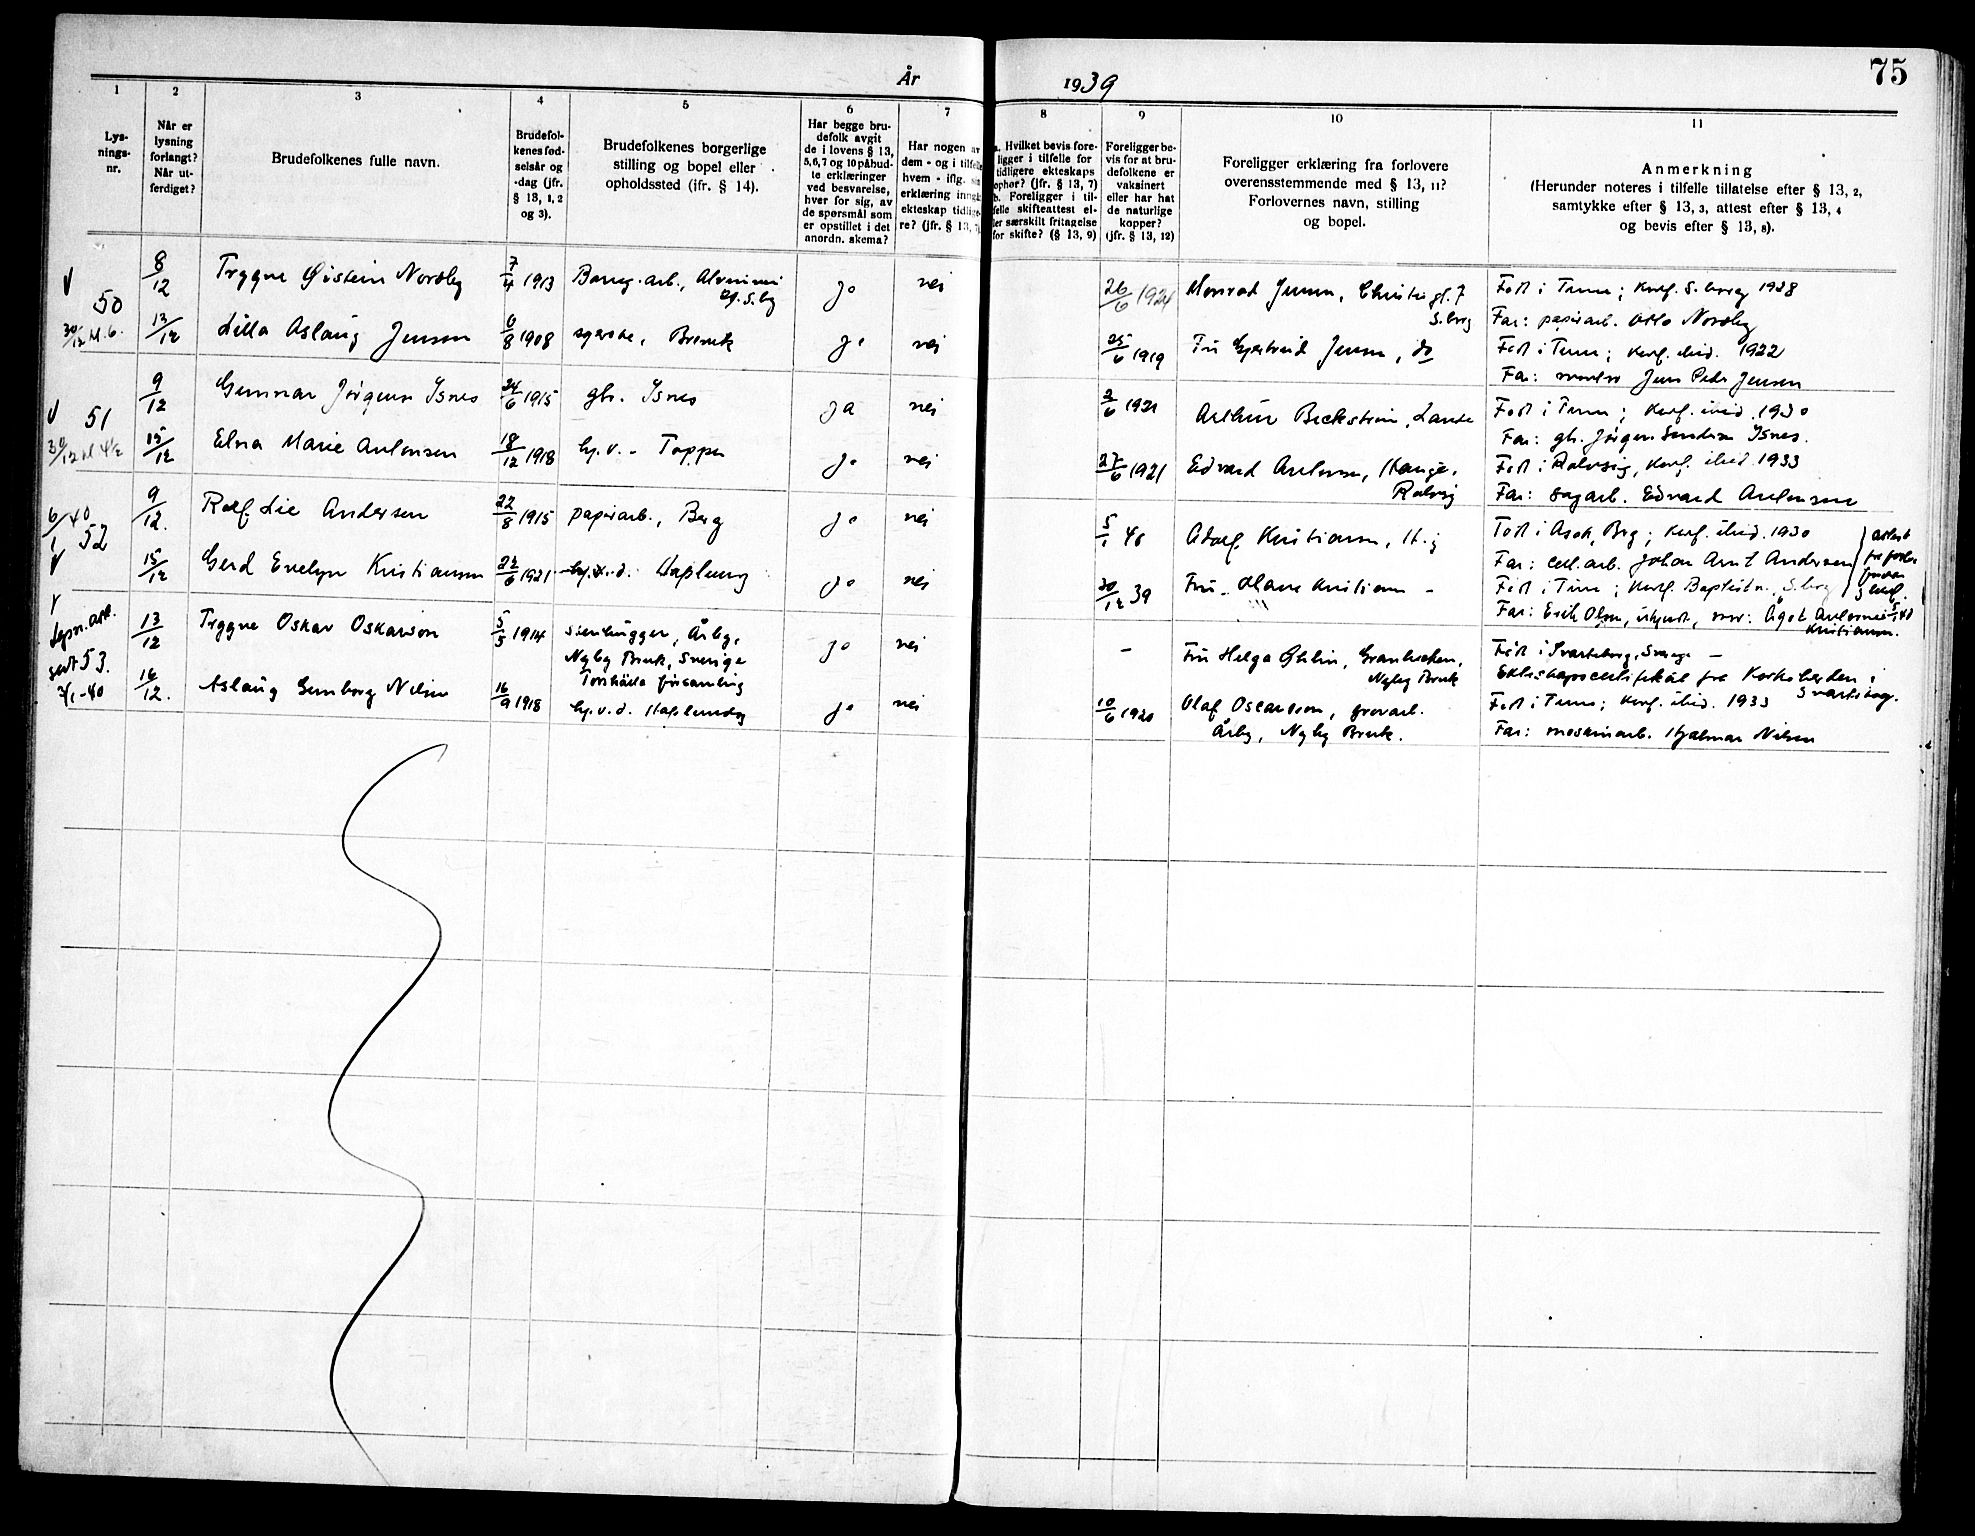 År 1939
75
1
2
3
4
5
6
7
8
9
10
11
Lys-
nings-
nr.
Når er
lysning
forlangt?
Når ut-
ferdiget?
Brudefolkenes fulle navn.
Brudefol-
kenes fød-
selsår og
-dag (jfr.
§ 13, 1, 2
og 3).
Brudefolkenes borgerlige
stilling og bopel eller
opholdssted (ifr. § 14).
Har begge bru-
defolk avgit
de i lovens § 13,
5, 6, 7 og 10 påbud-
te erklæringer
ved besvarelse,
hver for sig, av
de spørsmål som
er opstillet i det
anordn. skema?
Har nogen av
dem - og i tilfelle
hvem - iflg.
erklæring inngå
ekteskap tidlige-
re? (jfr. § 13,
Hvilket bevis fore-
ligger i tilfelle for
tidligere ekteskaps
ophør? (jfr. § 13, 7)
b. Foreligger i til-
felle skifteattest el-
ler særskilt fritagelse
for skifte? (§ 13, 9)
Foreligger be-
vis for at bru-
defolkene er
vaksinert
eller har hat
de naturlige
kopper?
(jfr. § 13, 12)
Foreligger erklæring fra forlovere
overensstemmende med § 13, 11?
Forlovernes navn, stilling
og bopel.
Anmerkning
(Herunder noteres i tilfelle tillatelse efter § 13, 2,
samtykke efter § 13, 3, attest efter § 13, 4
og bevis efter § 13, 8).
50
8/12
Trygve Øistein Nordby
7/4 1913
ja
nei
26/6 1924
Født i Tune; konf. S.borg 1928
Far: papirarb. Otto Nordby
30/12 kl. 6.
13/12
Lilla Aslaug Jensen
6/8 1908
ja
nei
25/6 1919
Fru Gjertrud Jensen, do
Født i Tune; konf. ibid. 1922
Far: Jens Peder Jensen
51
9/12
Gunnar Jørgen Isnes
24/6 1915
gbr. Isnes
ja
nei
2/6 1921
Arthur Beckström,
Født i Tune; konf. ibid. 1930
Far: gbr. Jørgen Isnes.
30/12 kl 4½
15/12
Elna Marie Antonsen
18/12 1918
hj.v. - Toppen
ja
nei
27/6 1921
Edvard Antonsen, Hauge,
Rolvsøy
Født i Rolvsøy, konf. ibid. 1933
Far: sagarb. Edvard Antonsen
6/1 40
52
9/12.
Rolf Lie Andersen
22/8 1915
papirarb., Berg
ja
nei
5/1 40
Adolf Kristiansen,
Født i Asak, Berg; konf. ibid. 1930
Far: cell.arb. Johan Arnt Andersen
15/12
Gerd Evelyn Kristiansen
22/6 1921
hj.v.d. Haslund
ja
nei
20/12 39
Fru Kristiansen -
Født i Tune; konf. Baptistm. S.borg
Far: Erik Olsen, ukjent, mor: Ågot
Kristiansen.
53.
13/12
Trygve Oskar Oskarson
5/5 1914
stenhugger, Årby,
Nyby Bruk, Sverige
Torshälla församling
ja
nei
-
Fru Helga Öhlin, Granbacken,
Nyby Bruk
Født i Svarteborg, Sverige -
Ekteskapscertifikat fra Kyrkoherden i
Svarteborg.
7/1-40
16/12.
Aslaug Gunborg Nilsen
16/9 1918
hj.v.d. Haslund
ja
nei
10/6 1920
Olaf Oscarsson, grovarb.
Årby, Nyby Bruk.
Født i Tune; konf. ibid. 1933
Far: maskinarb. Hjalmar Nilsen